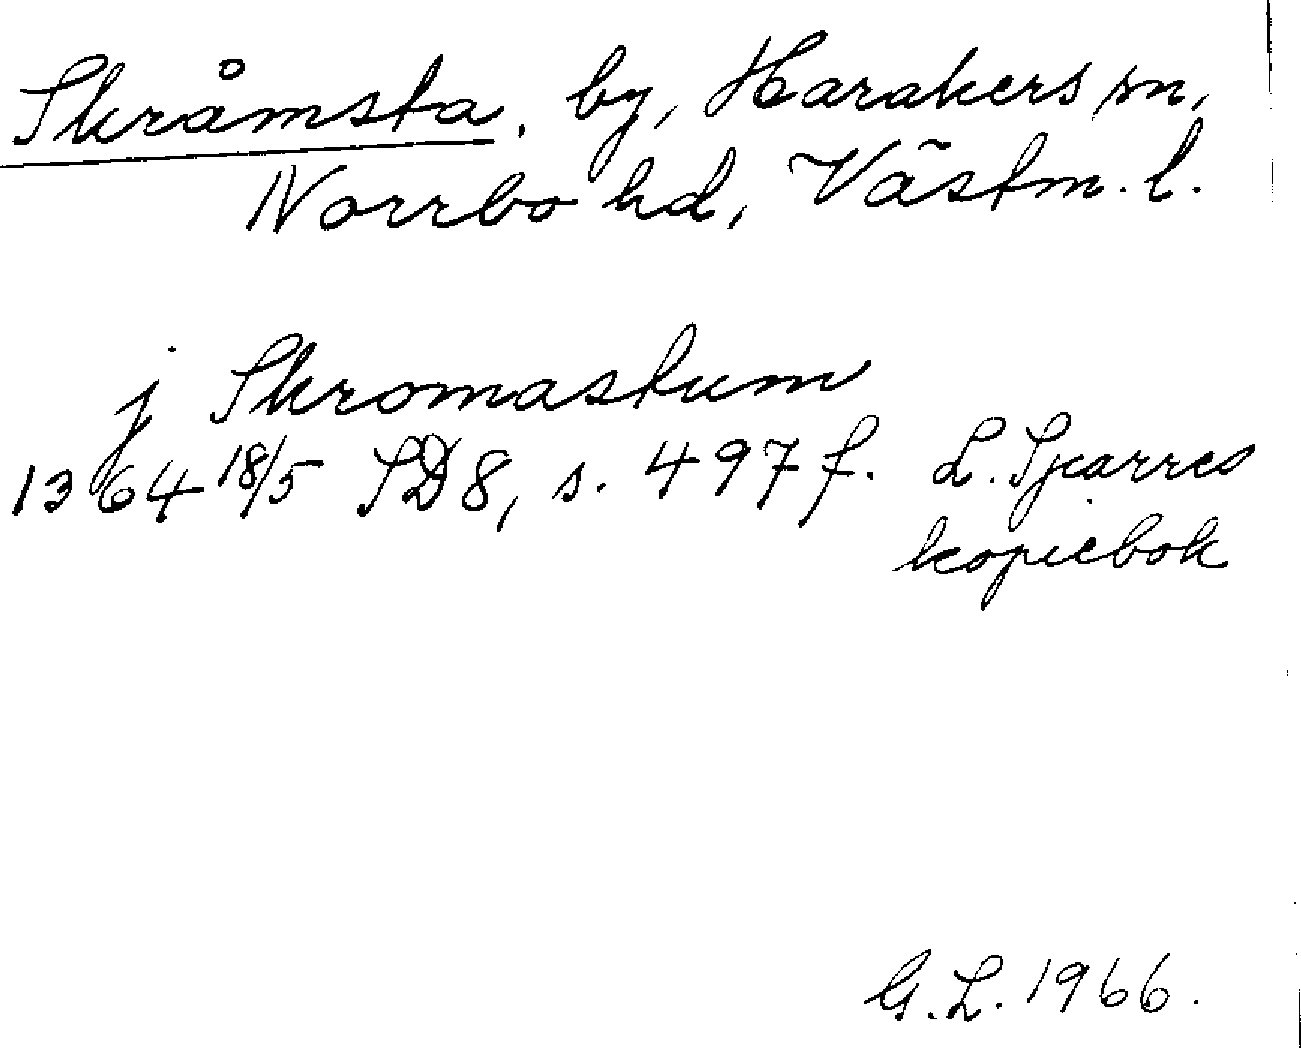 Skråmsta. by, Harakers sn,
Norrbo hd, Västm. l.
j Skromastum
1364 18/5 SD8, s. 497 f. L. Sparres
kopiebok
G.L. 1966.